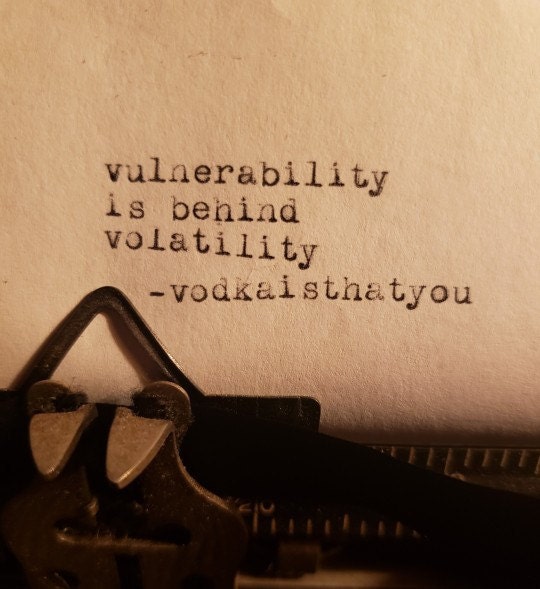 vulnerability
is behind
volatility
-vodkaisthatyou
20